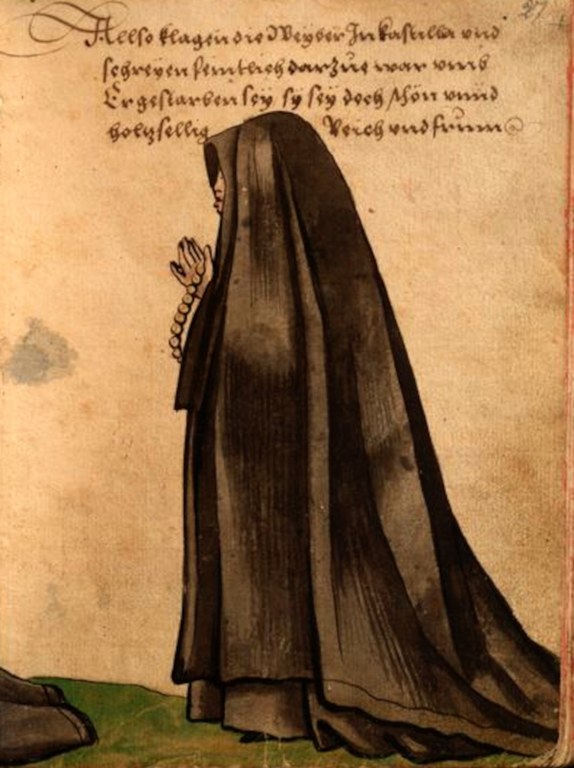 Allso klagen die Weyber In kastilla vnd
schreyen feintlich darzue war vmb
Er gestarben sey sy sey doch schön vnnd
holtzsellig Reich vnd frumm
27